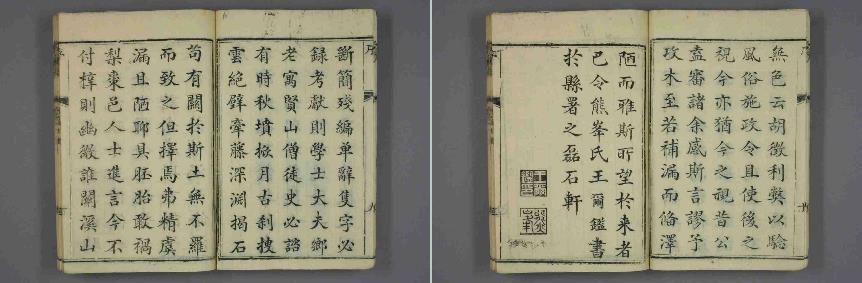 斷簡殘編單辭隻字必
録考獻則學士大夫鄉
老寓賢山僧徒史必諮
有時秋墳掀月古刹捜
雲絕壁牽藤深淵揭石
苟有關於斯土無不羅
而致之但擇焉弗精虞
漏且陋聊具胚胎敢禍
梨棗邑人士進言今不
付梓則幽微誰闡溪山
無色云胡徵利獘以驗
風俗施政令且使後之
視今亦猶今之視昔公
盍審諸余感斯言謬予
攻木至若補漏而脩澤
陋而雅斯所望於来者
已令熊峯氏王爾鑑書
於縣署之磊石軒